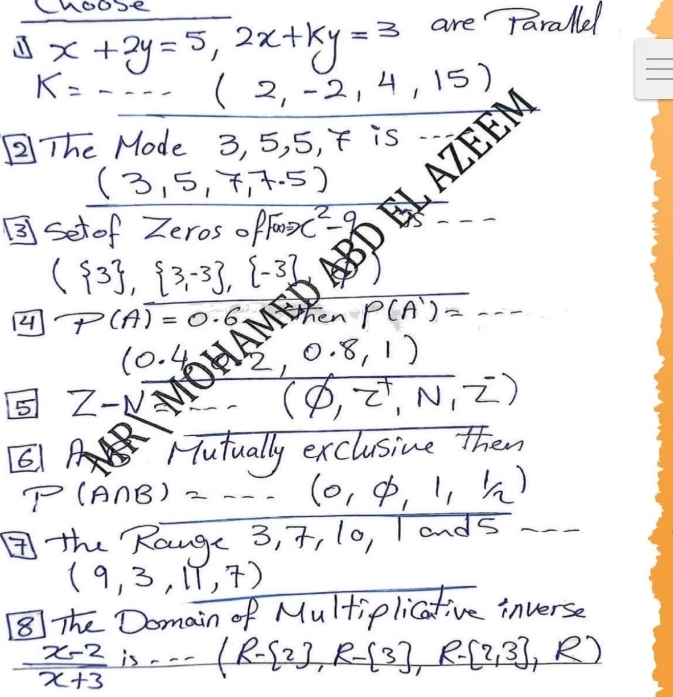 Choose
1 x + 2y = 5, 2x + Ky = 3 are Parallel
K = ----- ( 2, -2, 4, 15 )
2 The Mode 3, 5, 5, 7 is ----
( 3, 5, 7, 7.5 )
3 Set of Zeros of F(x)=x²-9 is ----
( {3}, {3,-3}, {-3}, Ø )
4 P(A) = 0.6 then P(A') = ----
(0.4, 0.2, 0.8, 1 )
5 Z-N = ---- (Ø, Z⁺, N, Z⁻)
6 Mutually exclusive then
P (A∩B) = ---- (0, Ø, 1, 1/2)
7 the Range 3, 7, 10, 1 and 5 ----
( 9, 3, 11, 7 )
8 The Domain of Multiplicative inverse
x-2 / x+3 is ---- (R-{2}, R-{3}, R-{2,3}, R)
MR\ MOHAMED ABD EL AZEEM